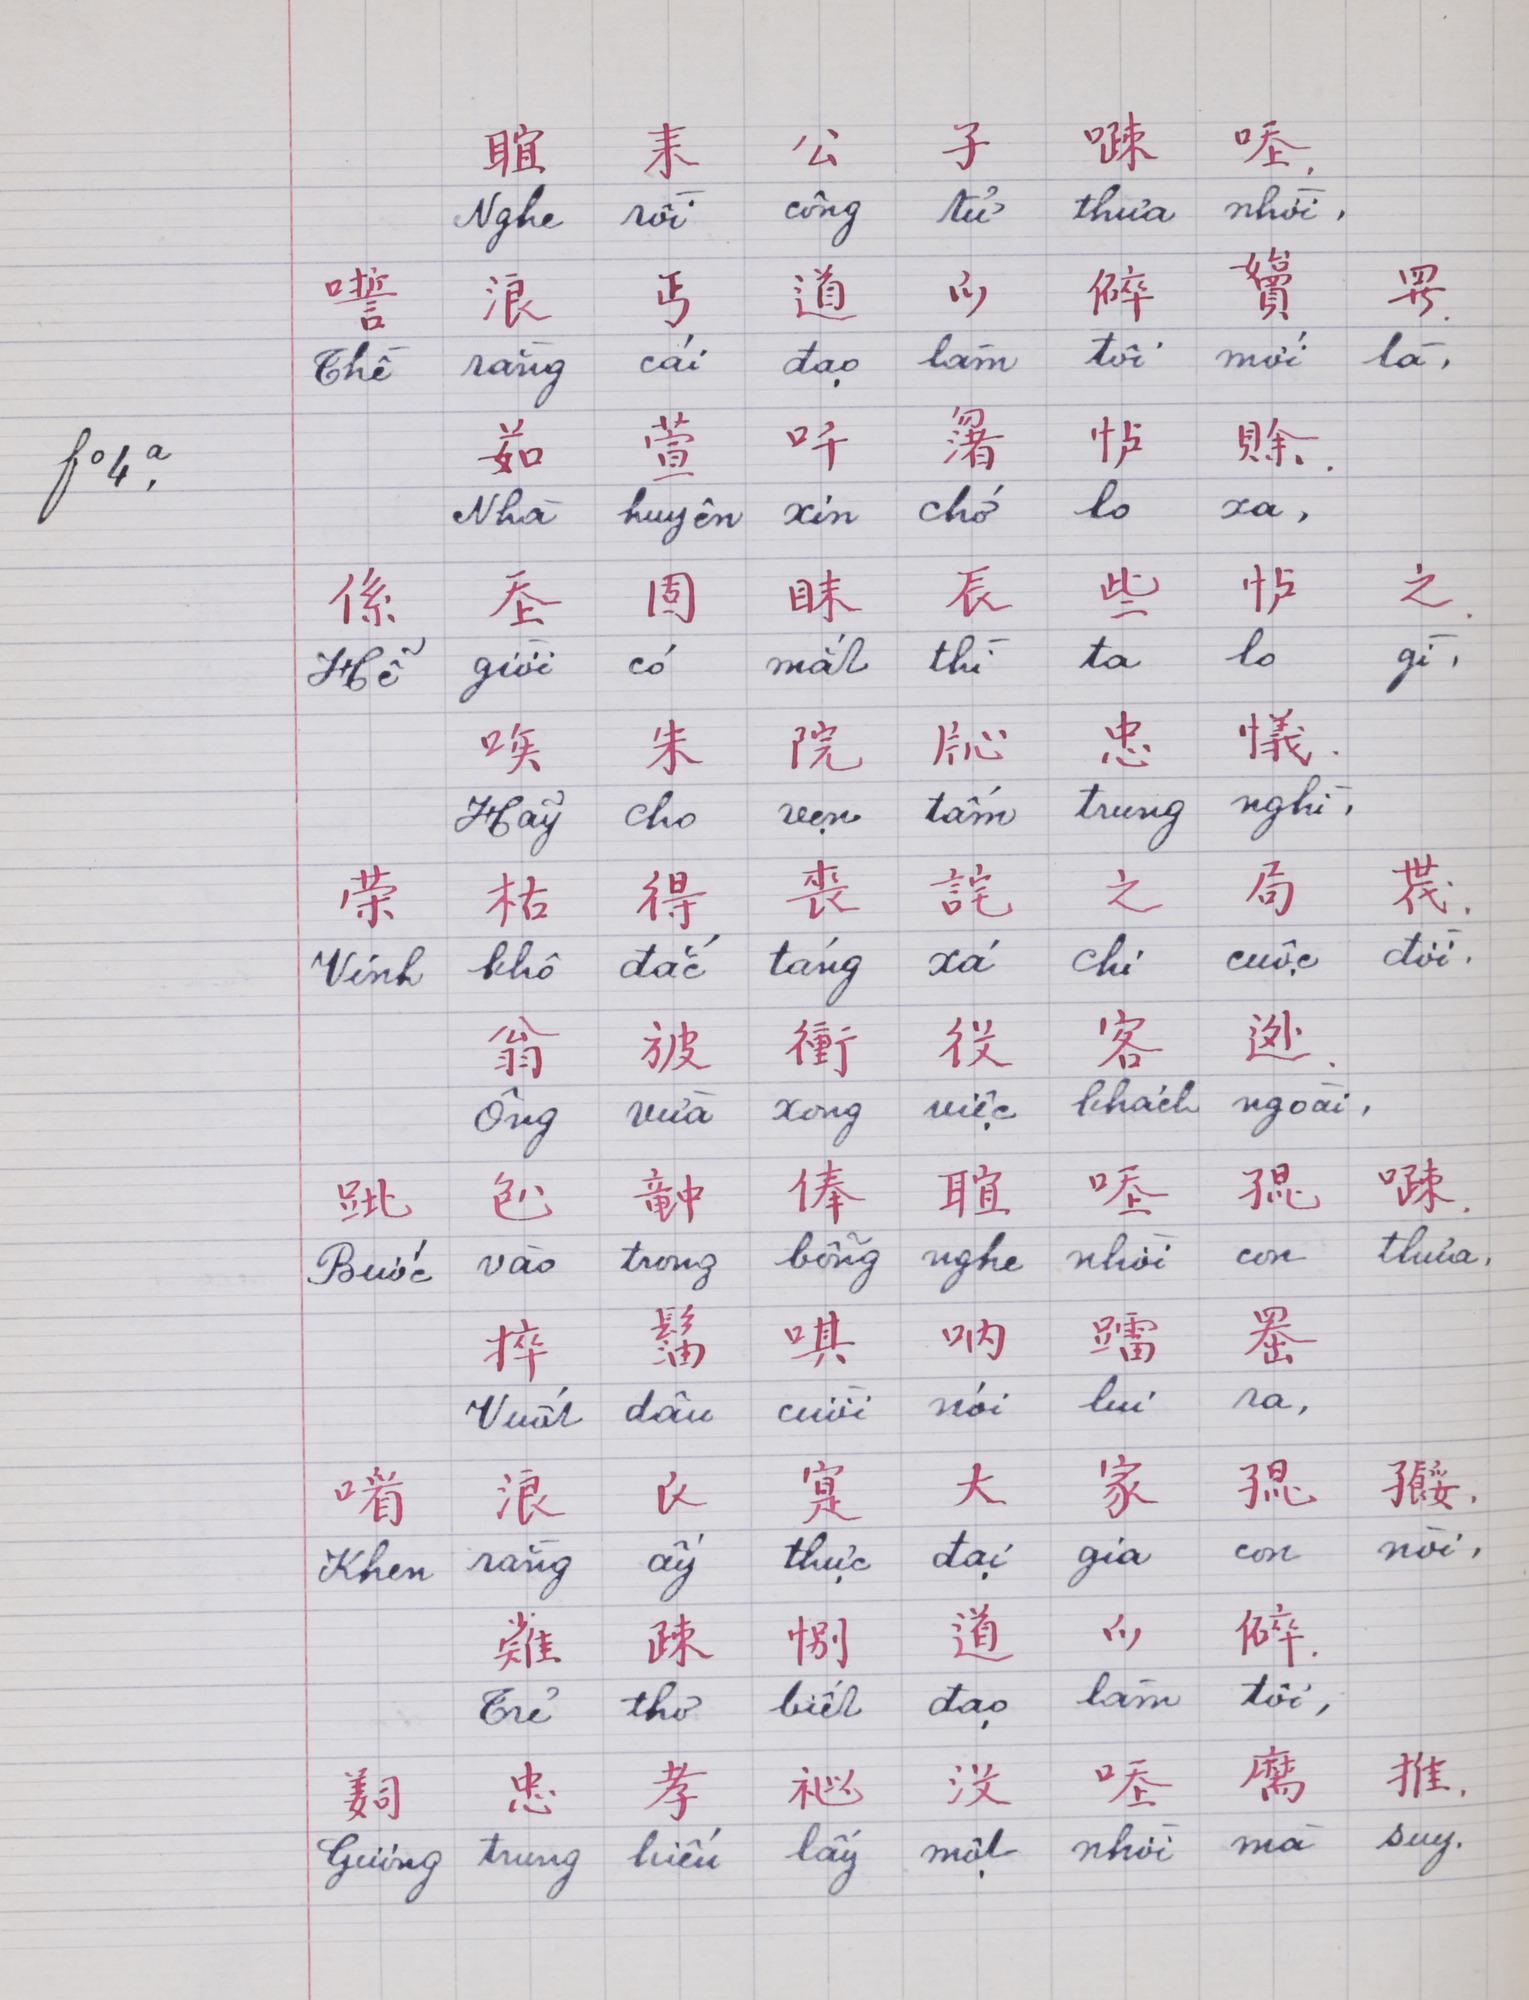 䀏耒公子𠽔𠳒.
Nghe rồi công tử thưa nhời,
𠽖浪丐道𬈋碎𡤓𦉱.
Thề rằng cái đạo làm tôi mới là,
茹萱吀𣋚怗賖.
fº4ª.
Nhà huyên xin chớ lo xa,
係𡗶固眜辰些怗之.
Hễ giời có mắt thì ta lo gì,
唉朱院𬌓忠懴.
Hãy cho vẹn tấm trung nghì,
荣枯得喪詫之局𦁀.
Vinh khô đắc táng xá chi cuộc đời.
翁𣃣衝役客逊.
Ông vừa xong việc khách ngoài,
𨀈𠓨𥪝俸䀏𠳒𡥵𠽔.
Bước vào trong bỗng nghe nhời con thưa,
捽𩯁唭吶𨆢𦋦
Vuốt dâu cười nói lui ra,
𠸦浪𧘇寔大家𡥵𡦫.
Khen rằng ấy thực đại gia con nòi,
𪨅疎恻道𬈋碎.
Trẻ thơ biết đạo làm tôi,
𦎛忠孝𥙩没𠳒麻推.
Gương trung hiếu lấy một nhời mà suy.